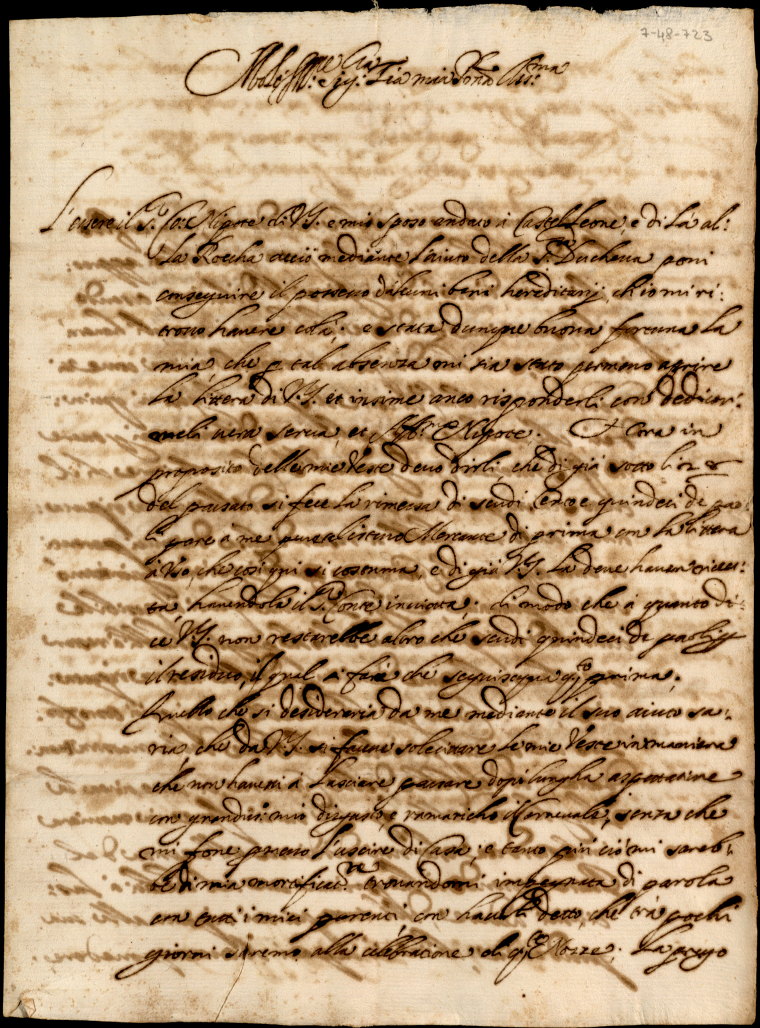 7-48-723
Molt' Ill.re e Sig.ra Zia mia S.ra Oss.ma
L'essere il S.r Co: Nipote di V.S. e mio sposo andato à Castel Leone, e di là al:
la Roccha acciò mediante l'aiuto della S.ra Duchessa possi
conseguire il possesso d'alcuni beni hereditarij ch'io mi ri:
trovo havere colà; e stata dunque buona fortuna la
mia, che p tal absenza mi sia stato permesso aprire
la littera di V.S. et insime anco risponderli con dedicar:
meli vera serva, et Nipote. Hora in
proposito delle mie Veste devo dirli, che di già sotto li 22
del passato si fece la rimessa di scudi cento e quindeci di pao:
li pare à me pure l'istesso Mercante di prima con la littera
à Vso, che così qui si costuma, e di già V.S. la deve haver ricev:
ta havendola il S.r Conte inviata. di modo che à quanto di:
ce V.S. non restarebbe altro che scudi quindeci di paoli p
il residuo, il qual si farà che seguisca qto prima.
Quello che si desidereria da me mediante il suo aiuto sa:
ria, che da V.S. si facesse solecittare le mie Veste in maniera
che non havessi à lasciare passare dopò lungha aspettatione
con grandiss:mo mio disgusto e ramaricho il Carnevale, senza che
mi fosse permesso l'uscire di casa; e tanto più ciò mi sareb:
be di mia mortificat.ne trovandomi impegnata di parola
con tutti i miei parenti, con haverli detto, che trà pochi
giorni saremo alla celebratione di qste Nozze. La prego